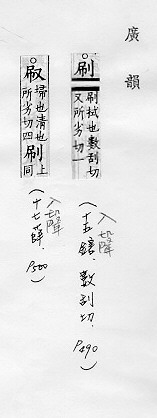 廣韻
刷 刷拭也數刮切又所劣切一
入聲
(十五鎋.數刮切.P490)
㕞 掃也清也所劣切四 刷 上同
入聲
(十七薛.P500)